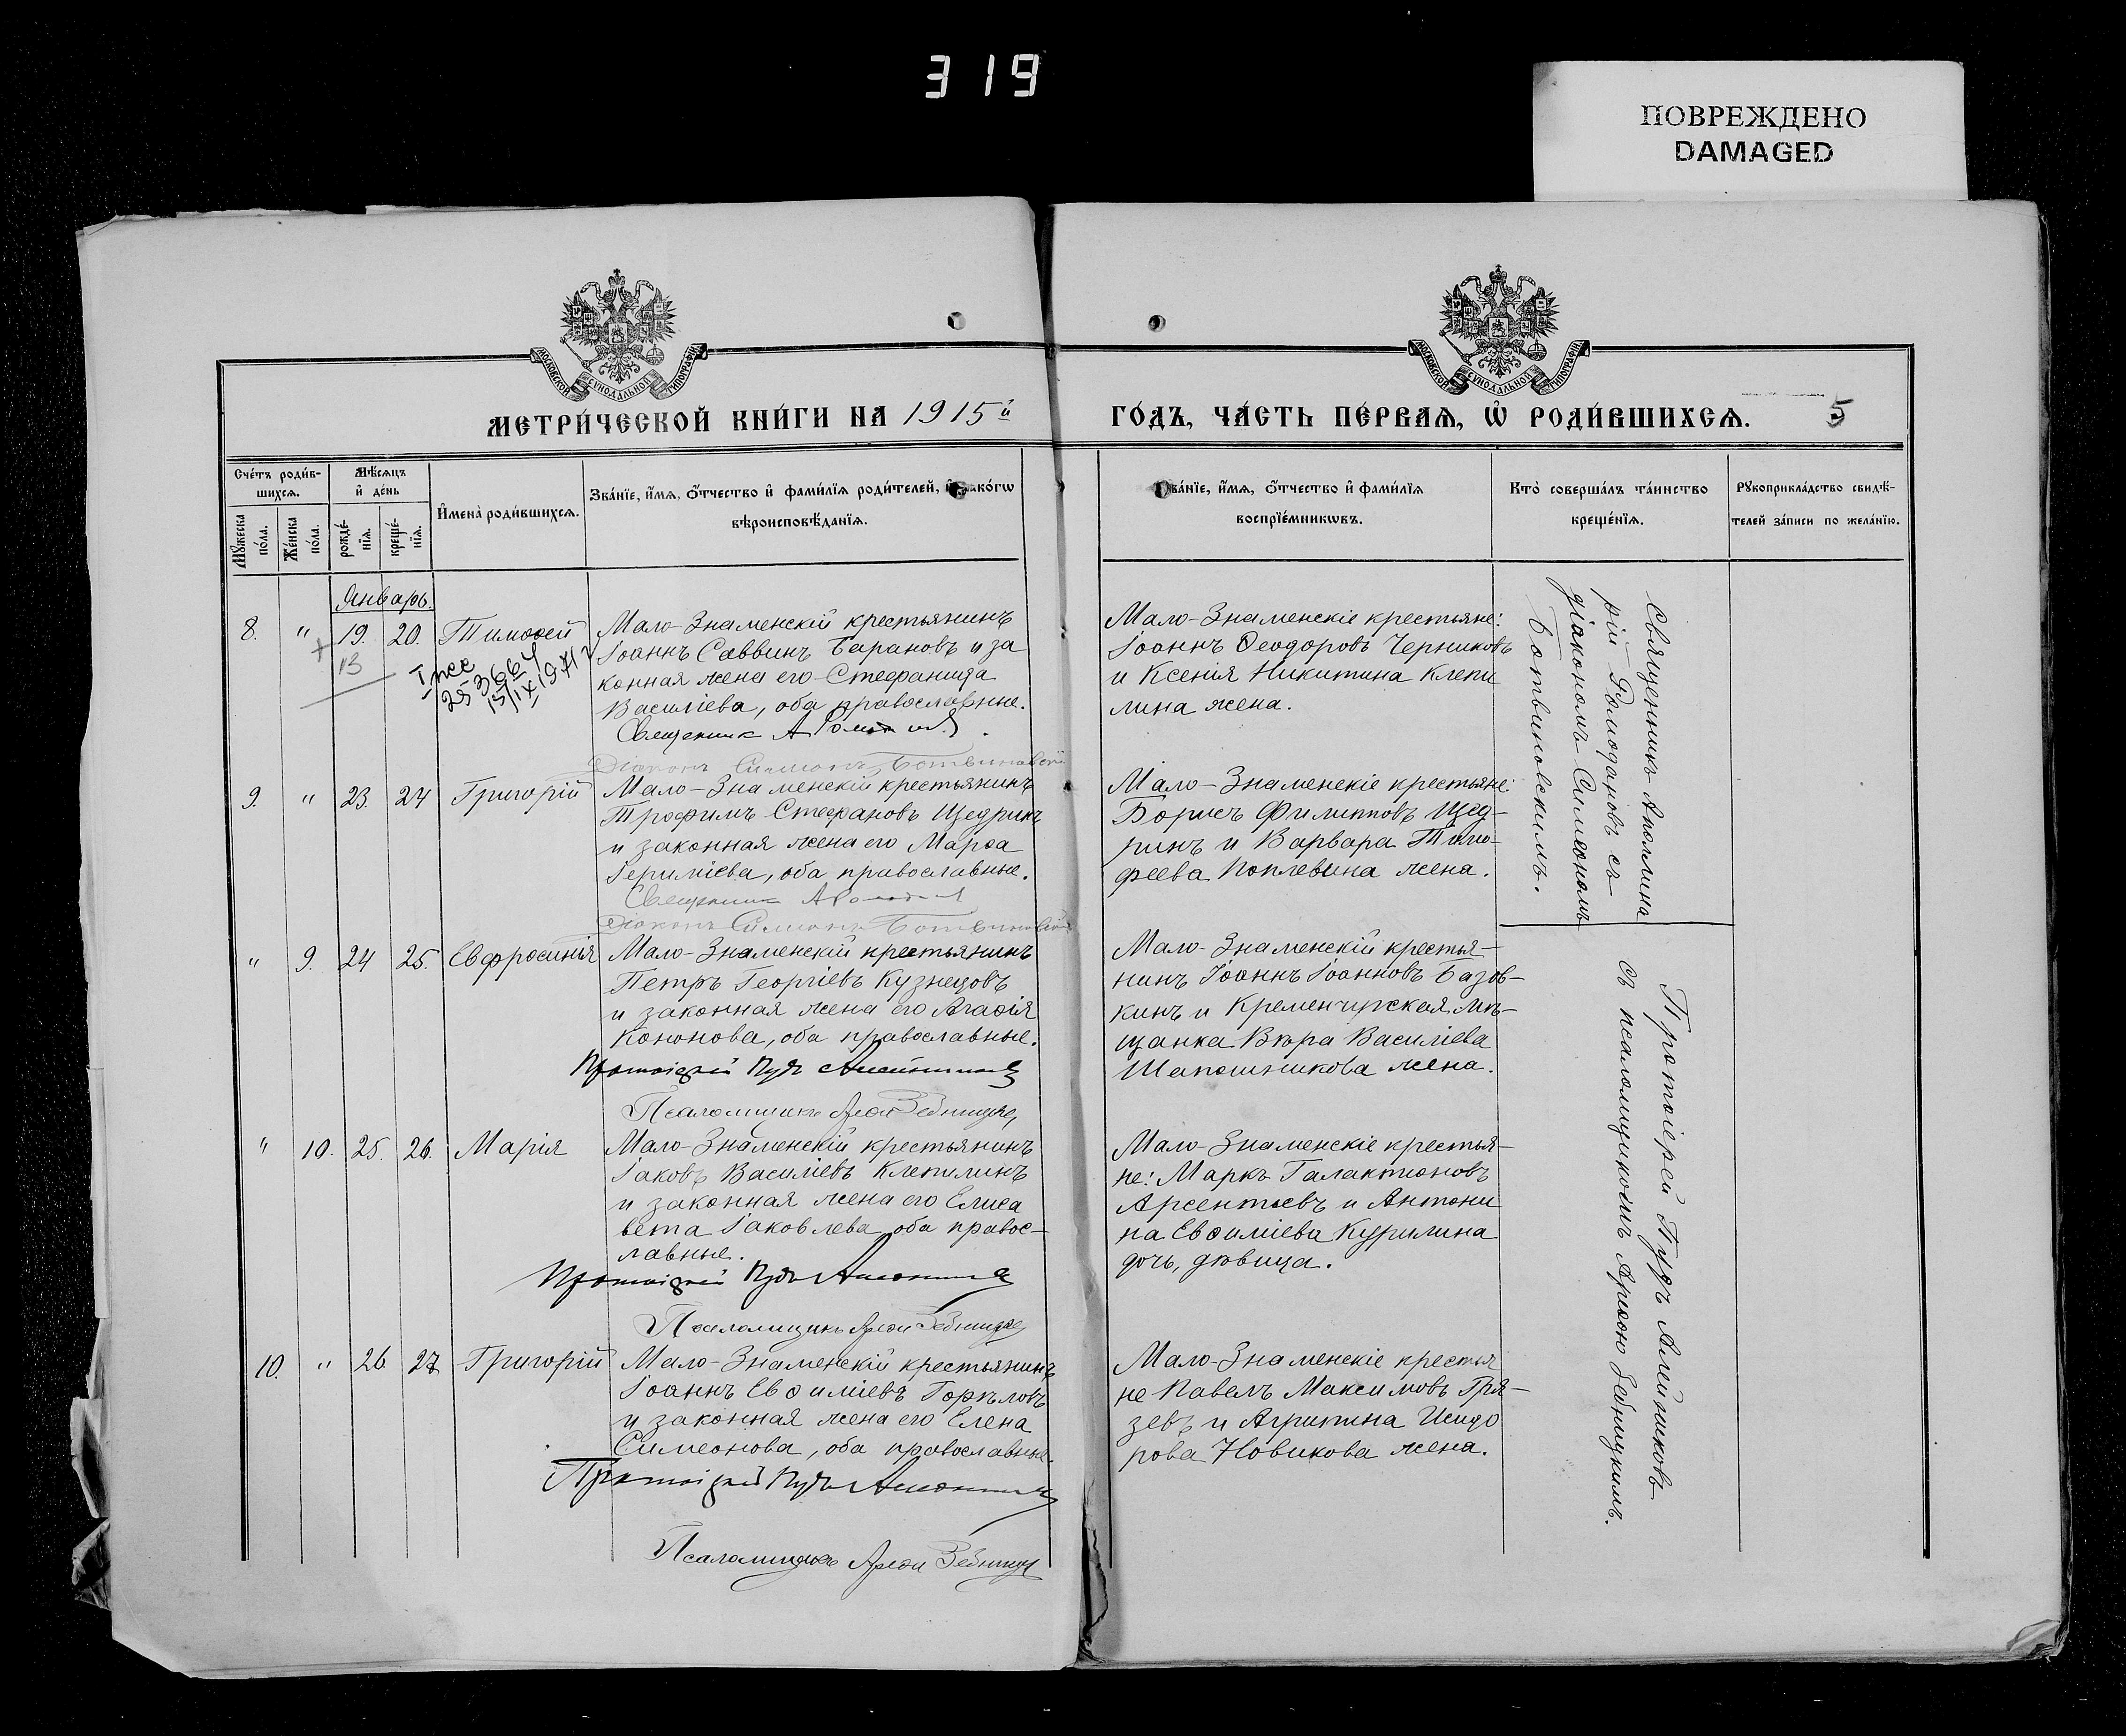 319
ПОВРЕЖДЕНО
DAMAGED
МОСКОВСКОЙ СУНОДАЛЬНОЙ ТИПОГРАФІИ
МОСКОВСКОЙ СУНОДАЛЬНОЙ ТИПОГРАФІИ
МЕТРИ́ЧЕСКОЙ КНИ́ГИ НА 1915й
ГО́ДЪ, ЧА́СТЬ ПЕ́РВАѦ, Ѽ РОДИ́ВШИХСѦ.
5
Сче́тъ роди́в-
шихсѧ.
Мѣ́сѧцъ
и҆ де́нь
Мꙋ́жеска
по́ла.
Же́нска
по́ла.
рожде́-
нїѧ.
креще́-
нїѧ.
И҆мена̀ роди́вшихсѧ.
Зва́нїе, и҆́мѧ, ѻ҆́тчество и҆ фами́лїѧ роди́телей, и҆ како́гѡ
вѣроисповѣ́данїѧ.
Зва́нїе, и҆́мѧ, ѻ҆́тчество и҆ фами́лїѧ
воспрїе́мникѡвъ.
Кто̀ соверша́лъ та́инство
креще́нїѧ.
Рꙋкоприкла́дство свидѣ́-
телей за́писи по жела́нїю.
Январь.
8. " 19. 20. Тимоѳей
13
Мало-Знаменскій крестьянинъ
Іоаннъ Саввинъ Барановъ и за
конная жена его Стефанида
Василіева, оба православные.
Священникъ А
Діаконъ Симеонъ Ботвиновскій
Мало-Знаменскіе крестьяне:
Іоаннъ Ѳеодоровъ Черниковъ
и Ксенія Никитина Клепи
лина жена.
Священникъ Аполлина
рій Ромодановъ съ
діакономъ Симеономъ
Ботвиновскимъ.
9. " 23. 24 Григорій
Мало-Знаменскій крестьянинъ
Трофимъ Стефановъ Щедринъ
и законная жена его Марѳа
Іереміева, оба православные.
Священникъ А
Діаконъ Симеонъ Ботвиновскій
Мало-Знаменскіе крестьяне:
Борисъ Филипповъ Щед-
ринъ и Варвара Тимо-
феева Поплевина жена.
" 9. 24 25. Евфросинія
Мало-Знаменскій крестьянинъ
Петръ Георгіевъ Кузнецовъ
и законная жена его Агаѳія
Кононова, оба православные.
Протоіерей Пудъ Алейниковъ
Псаломщикъ Арсен Зебницкій
Мало-Знаменскій крестья-
нинъ Іоаннъ Іоанновъ Базов-
кинъ и Кременчугская мѣ-
щанка Вѣра Василіева
Шапошникова жена.
Протоіерей Пудъ Алейниковъ
съ псаломщикомъ
" 10. 25. 26. Марія
Мало-Знаменскій крестьянинъ
Іаковъ Василіевъ Клепилинъ
и законная жена его Елиса
вета Іаковлева, оба правос-
лавные.
Протоіерей Пудъ Алейниковъ
Псаломщикъ
Мало-Знаменскіе крестья-
не: Маркъ Галактионовъ
Арсентьевъ и Антони
на Евѳиміева Курилина
дочь, дѣвица.
10. " 26 27 Григорій
Мало-Знаменскій крестьянинъ
Іоаннъ Евѳиміевъ Горѣловъ
и законная жена его Елена
Симеонова, оба православные.
Протоіерей Пудъ Алейниковъ
Псаломщикъ
Мало-Знаменскіе крестья
не Павелъ Максимовъ Гря-
зевъ и Агрипина Исидо
рова Новикова жена.